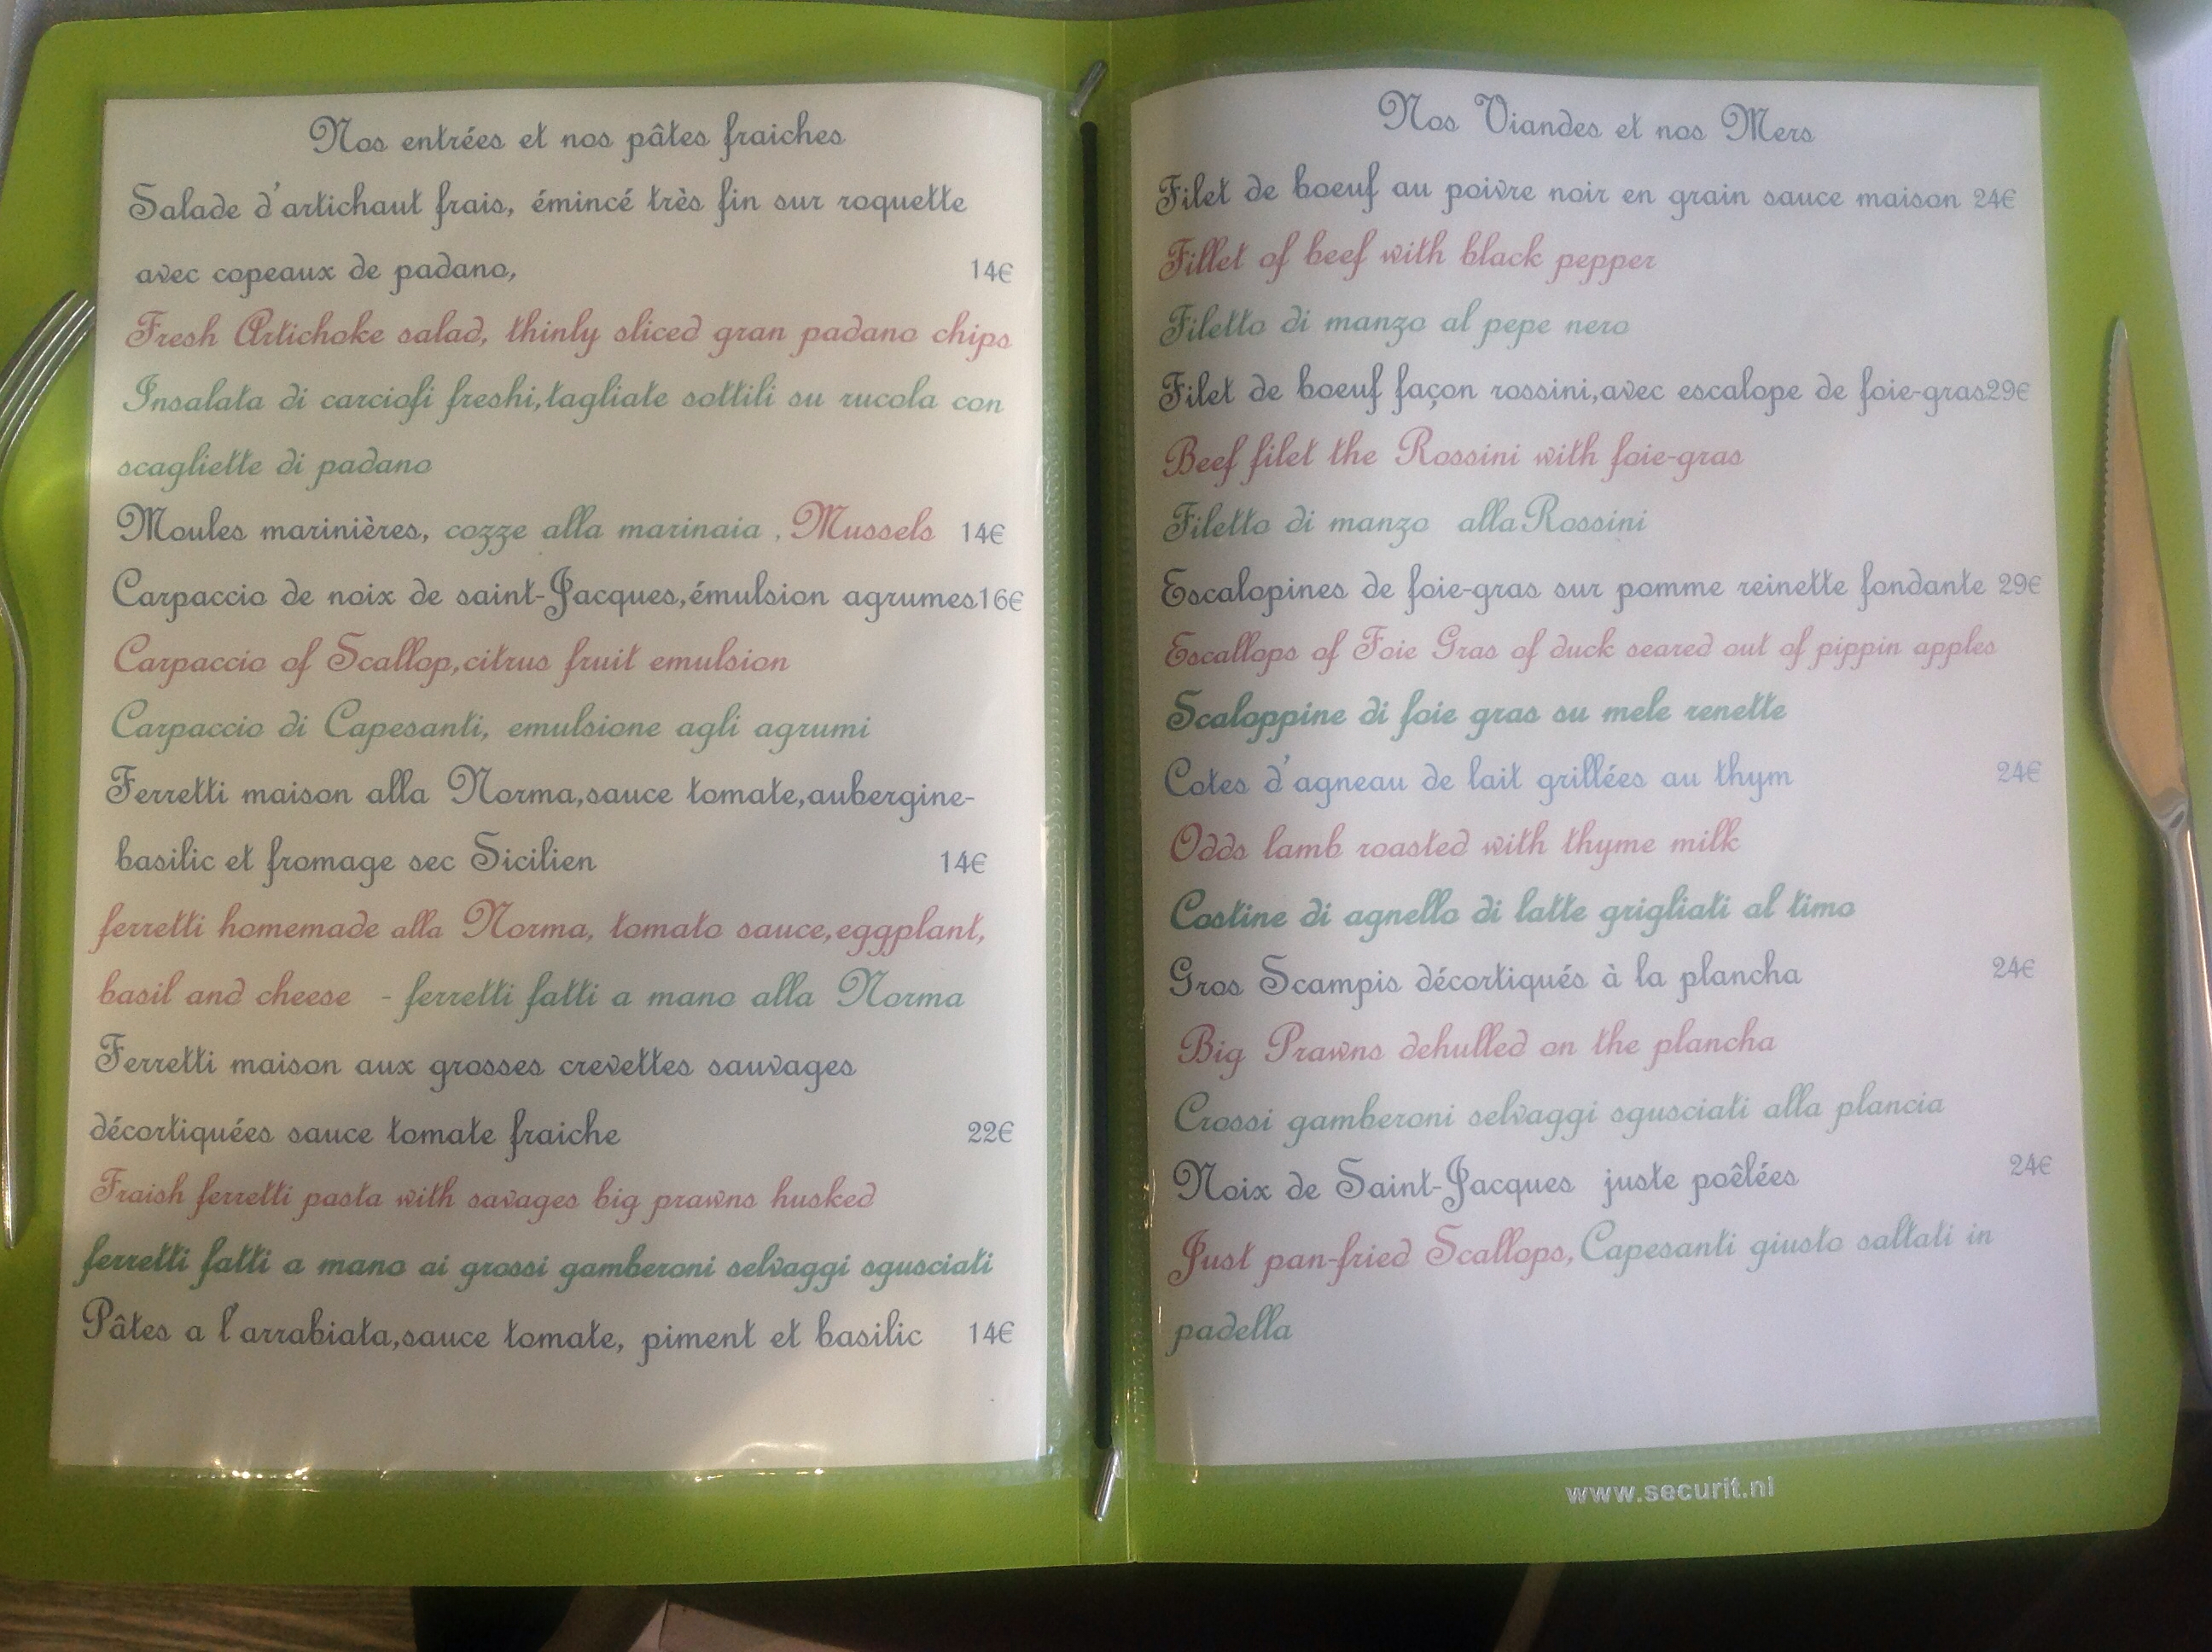 Nos entrées et nos pâtes fraiches
Salade d'artichaut frais, émincé très fin sur roquette
avec copeaux de padano, 14€
Fresh Artichoke salad, thinly sliced gran padano chips
Insalata di carciofi freshi,tagliate sottili su rucola con
scagliette di padano
Moules marinières, cozze alla marinaia , Mussels 14€
Carpaccio de noix de saint-Jacques,émulsion agrumes16€
Carpaccio of Scallop,citrus fruit emulsion
Carpaccio di Capesanti, emulsione agli agrumi
Ferretti maison alla Norma,sauce tomate,aubergine-
basilic et fromage sec Sicilien 14€
ferretti homemade alla Norma, tomato sauce,eggplant,
basil and cheese - ferretti fatti a mano alla Norma
Ferretti maison aux grosses crevettes sauvages
décortiquées sauce tomate fraiche 22€
Fraish ferretti pasta with savages big prawns husked
ferretti fatti a mano ai grossi gamberoni selvaggi sgusciati
Pâtes a l'arrabiata,sauce tomate, piment et basilic 14€
Nos Viandes et nos Mers
Filet de boeuf au poivre noir en grain sauce maison 24€
Fillet of beef with black pepper
Filetto di manzo al pepe nero
Filet de boeuf façon rossini,avec escalope de foie-gras29€
Beef filet the Rossini with foie-gras
Filetto di manzo alla Rossini
Escalopines de foie-gras sur pomme reinette fondante 29€
Escallops of Foie Gras of duck seared out of pippin apples
Scaloppine di foie gras su mele renette
Cotes d'agneau de lait grillées au thym 24€
Odds lamb roasted with thyme milk
Costine di agnello di latte grigliati al timo
Gros Scampis décortiqués à la plancha 24€
Big Prawns dehulled on the plancha
Crossi gamberoni selvaggi sgusciati alla plancia
Noix de Saint-Jacques juste poêlées 24€
Just pan-fried Scallops, Capesanti giusto saltati in
padella
www.securit.nl